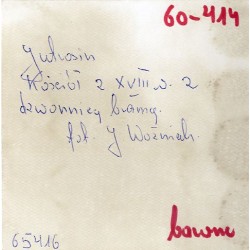 60-414
Jutrosin
Kościół z XVIII w. z
dzwonnicą bramą.
fot. J Woźniak.
65416
barwne